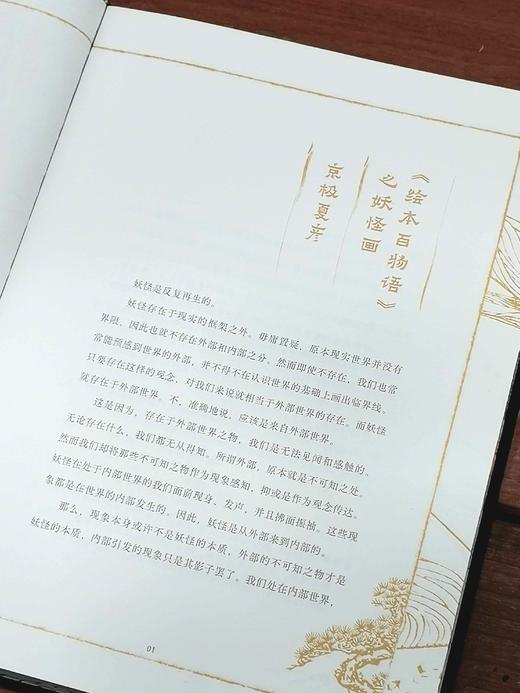 《绘本百物语》
之妖怪画
京极夏彦
妖怪是反复再生的。
妖怪存在于现实的框架之外。毋庸置疑，原本现实世界并没有
界限，因此也就不存在外部和内部之分。然而即使不存在，我们也常
常能预感到世界的外部，并不得不在认识世界的基础上画出临界线。
只要存在这样的观念，对我们来说就相当于外部世界的存在。而妖怪
就存在于外部世界。不，准确地说，应该是来自外部世界。
这是因为，存在于外部世界之物，我们是无法见闻和感触的。
无论存在什么，我们都无从得知。所谓外部，原本就是不可知之处。
然而我们却将那些不可知之物作为现象感知，抑或是作为观念传达。
妖怪在处于内部世界的我们面前现身、发声，并且拂面振袖。这些现
象都是在世界的内部发生的。因此，妖怪是从外部来到内部的。
那么，现象本身或许不是妖怪的本质，外部的不可知之物才是
妖怪的本质，内部引发的现象只是其影子罢了。我们处在内部世界，
01